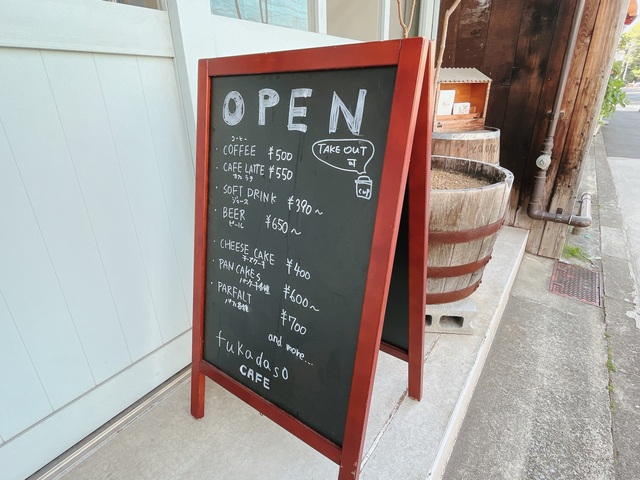 OPEN
コーヒー
・COFFEE ¥500
TAKE OUT
可
CUP
・CAFE LATTE ¥550
カフェラテ
・SOFT DRINK ¥390～
ジュース
・BEER ¥650～
ビール
・CHEESE CAKE ¥400
チーズケーキ
・PAN CAKES ¥600～
・PARFAIT ¥700
and more...
fukadaso
CAFE